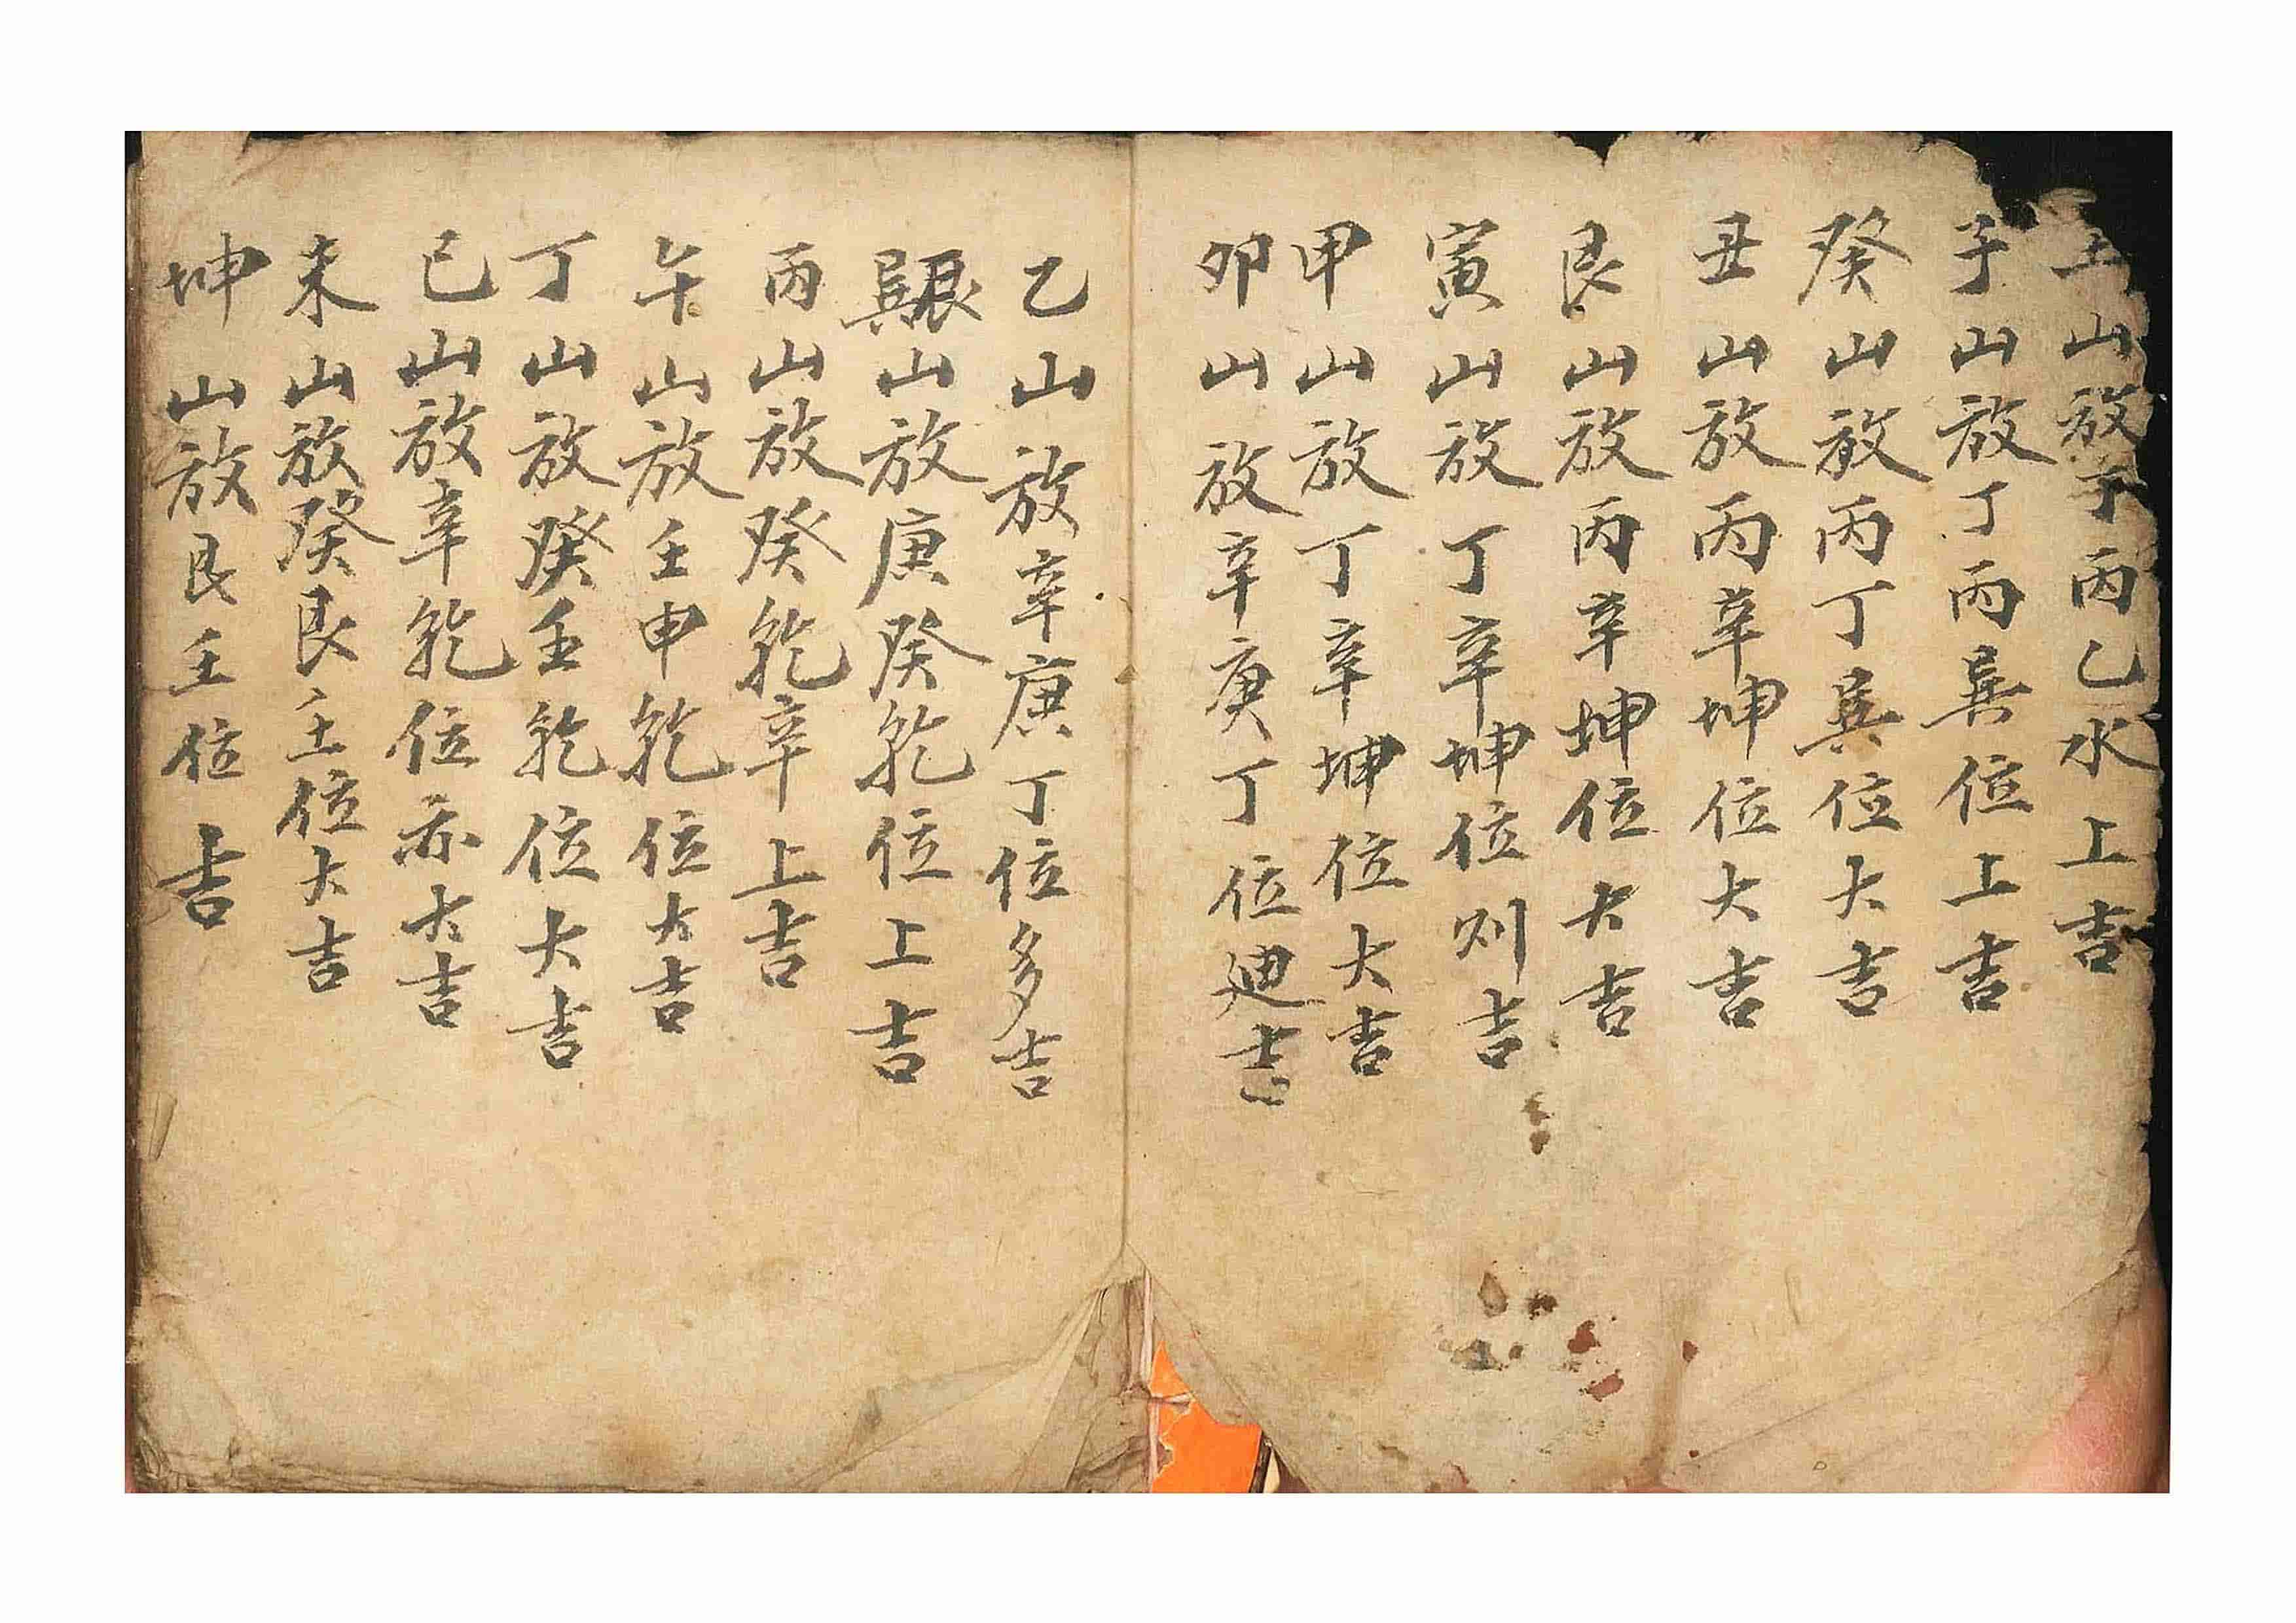 壬山放丁丙乙水上吉
子山放丁丙巽位上吉
癸山放丙丁巽位大吉
丑山放丙辛坤位大吉
艮山放丙辛坤位大吉
寅山放丁辛坤位则吉
甲山放丁辛坤位大吉
卯山放辛庚丁位迪吉
乙山放辛庚丁位多吉
巽山放庚癸乾位上吉
丙山放癸乾辛上吉
午山放壬申乾位大吉
丁山放癸壬乾位大吉
巳山放辛乾位亦大吉
未山放癸艮壬位大吉
坤山放艮壬位上吉